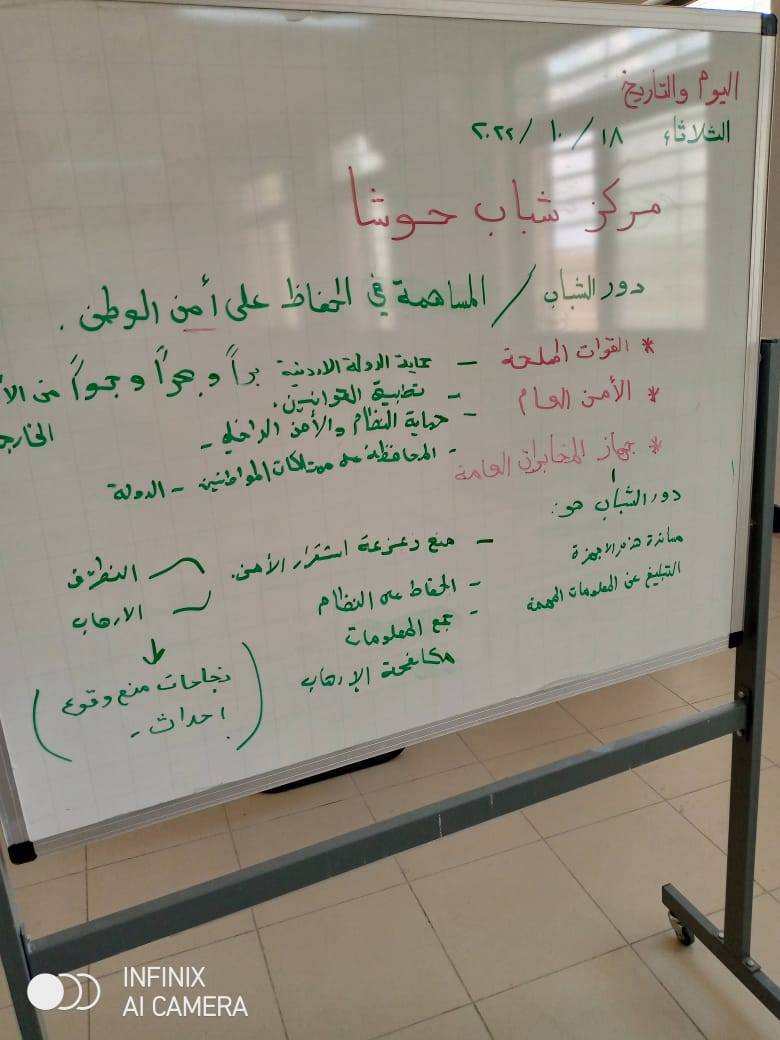 اليوم والتاريخ
الثلاثاء ١٨ / ١٠ / ٢٠٢٢
مركز شباب حوشا
دور الشباب / المساهمة في الحفاظ على أمن الوطن .
* القوات المسلحة – حماية الدولة الاردنية براً وبحراً وجواً من
* الأمن العام – تطبيق القوانين .
– حماية النظام والأمن الداخلي –
* جهاز المخابرات العامة – المحافظة على ممتلكات المواطنين – الدولة
دور الشباب هو :
مساندة هذه الاجهزة
التبليغ عن المعلومات المهمة
– منع زعزعة استقرار الأمن .
– الحفاظ على النظام
– جمع المعلومات
مكافحة الإرهاب
التطرف
الارهاب
( نجاحات منع وقوع
احداث – )
INFINIX
AI CAMERA